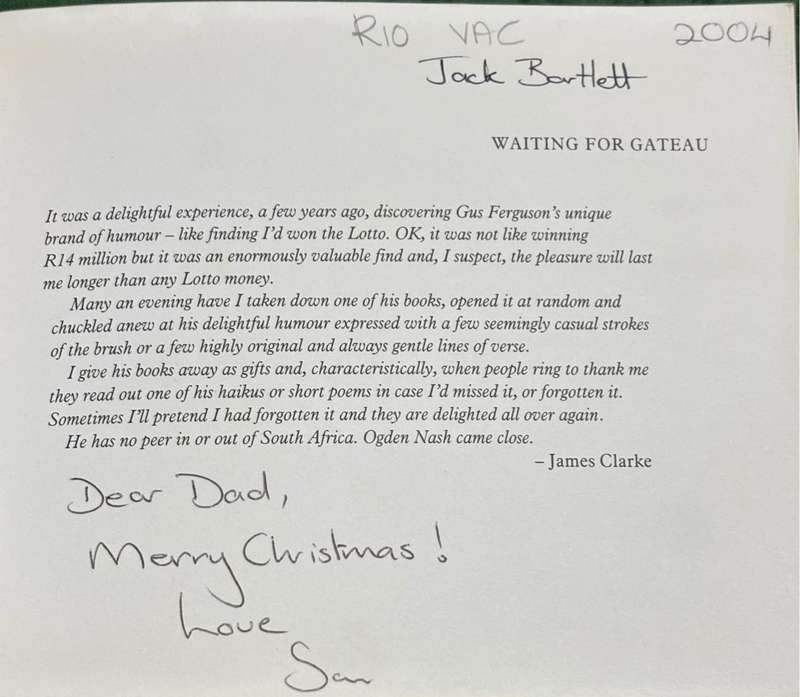 RIO VAC 2004
Jack Bartlett
WAITING FOR GATEAU
It was a delightful experience, a few years ago, discovering Gus Ferguson's unique
brand of humour – like finding I'd won the Lotto. OK, it was not like winning
R14 million but it was an enormously valuable find and, I suspect, the pleasure will last
me longer than any Lotto money.
Many an evening have I taken down one of his books, opened it at random and
chuckled anew at his delightful humour expressed with a few seemingly casual strokes
of the brush or a few highly original and always gentle lines of verse.
I give his books away as gifts and, characteristically, when people ring to thank me
they read out one of his haikus or short poems in case I'd missed it, or forgotten it.
Sometimes I'll pretend I had forgotten it and they are delighted all over again.
He has no peer in or out of South Africa. Ogden Nash came close.
– James Clarke
Dear Dad,
Merry Christmas!
Love
San